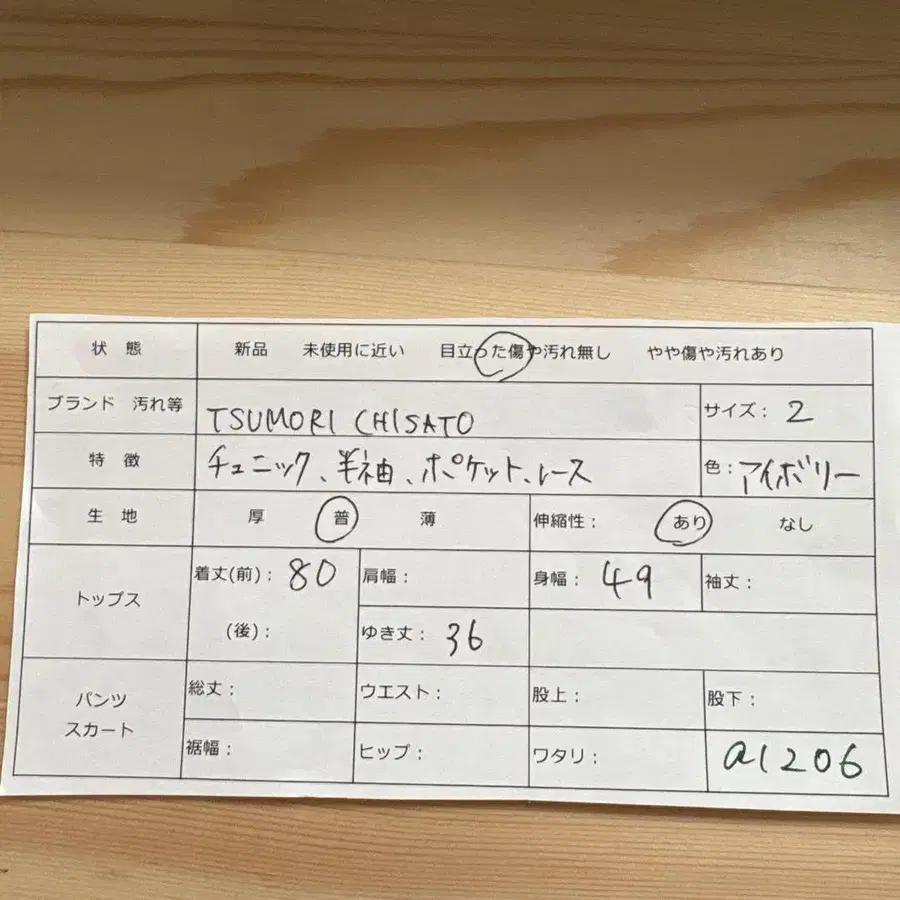 状態 新品 未使用に近い 目立った傷や汚れ無し やや傷や汚れあり
ブランド 汚れ等 TSUMORI CHISATO サイズ: 2
特徴 チュニック、半袖、ポケット、レース 色: アイボリー
生地 厚 普 薄 伸縮性: あり なし
トップス 着丈(前): 80 肩幅: 身幅: 49 袖丈:
(後): ゆき丈: 36
パンツ スカート 総丈: ウエスト: 股上: 股下:
裾幅: ヒップ: ワタリ: a1206